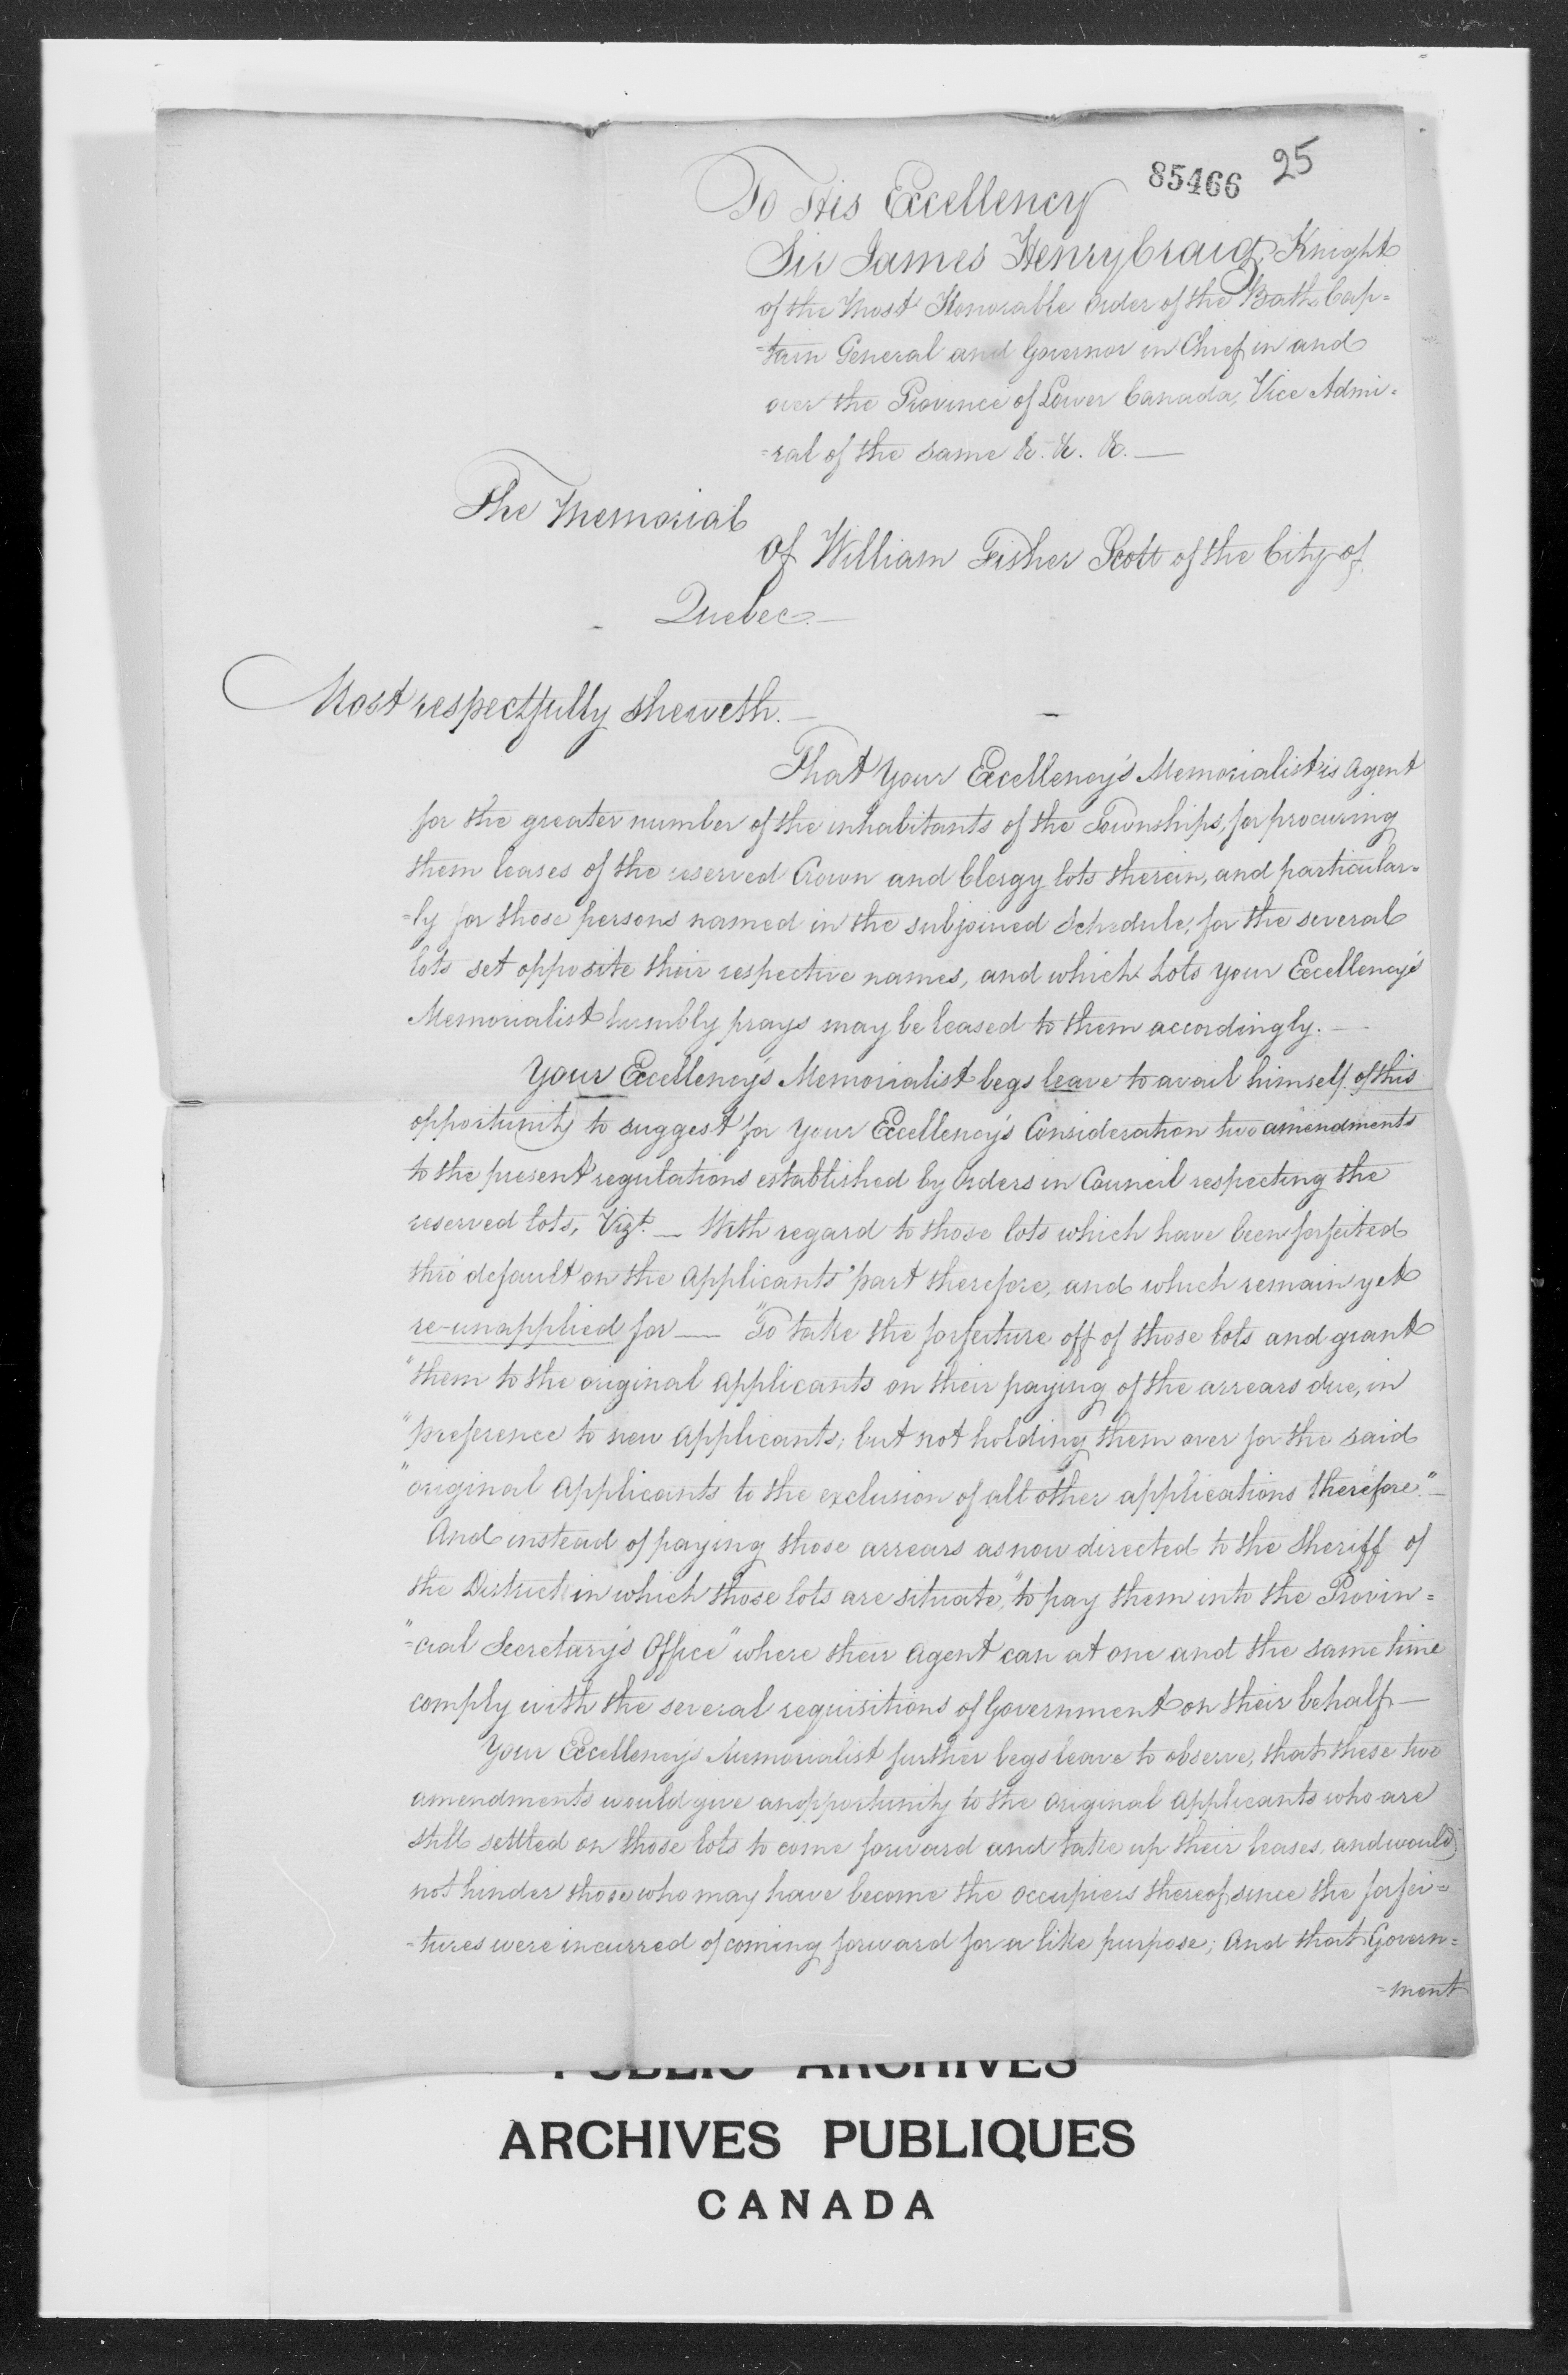 85466 25
To His Excellency
Sir James Henry Craig, Knight
of the Most Honorable Order of the Bath, Cap=
=tain General and Governor in Chief in and
over the Province of Lower Canada, Vice Admi=
=ral of the same &. &. &.—
The Memorial
Of William Fisher Scott of the City of
Quebec.—
Most respectfully sheweth.—
That Your Excellency's Memorialist is Agent
for the greater number of the inhabitants of the Townships, for procuring
them leases of the reserved Crown and Clergy lots therein, and particular=
=ly for those persons named in the subjoined Schedule, for the several
lots set opposite their respective names, and which Lots Your Excellency's
Memorialist humbly prays may be leased to them accordingly.—
Your Excellency's Memorialist begs leave to avail himself of this
opportunity to suggest for Your Excellency's Consideration two amendments
to the present regulations established by Orders in Council respecting the
reserved lots, Vizt. — With regard to those lots which have been forfeited
thro' default on the Applicants' part therefore, and which remain yet
re-unapplied for — "To take the forfeiture off of those lots and grant
"them to the original Applicants on their paying of the arrears due, in
"preference to new Applicants; but not holding them over for the said
"original Applicants to the exclusion of all other applications therefore."—
And instead of paying those arrears as now directed to the Sheriff of
the District in which those lots are situate, "to pay them into the Provin=
"=cial Secretary's Office" where their Agent can at one and the same time
comply with the several requisitions of Government on their behalf.—
Your Excellency's Memorialist further begs leave to observe, that these two
amendments would give an opportunity to the Original Applicants who are
still settled on those lots to come forward and take up their leases, and would
not hinder those who may have become the Occupiers thereof since the forfei=
=tures were incurred of coming forward for a like purpose; And that Govern=
=ment
PUBLIC ARCHIVES
ARCHIVES PUBLIQUES
CANADA